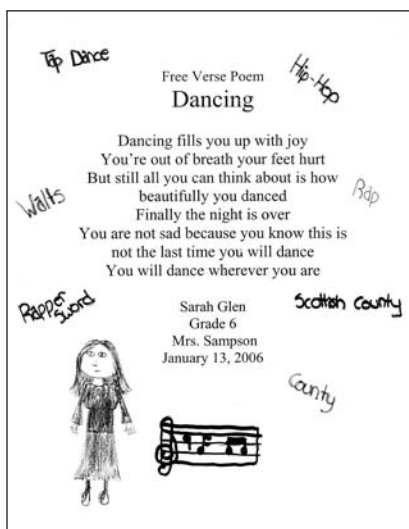 Tap Dance
Hip-Hop
Free Verse Poem
Dancing
Dancing fills you up with joy
You're out of breath your feet hurt
But still all you can think about is how
beautifully you danced
Finally the night is over
You are not sad because you know this is
not the last time you will dance
You will dance wherever you are
Walts
Rap
Rapper
Sword
Scottish County
County
Sarah Glen
Grade 6
Mrs. Sampson
January 13, 2006